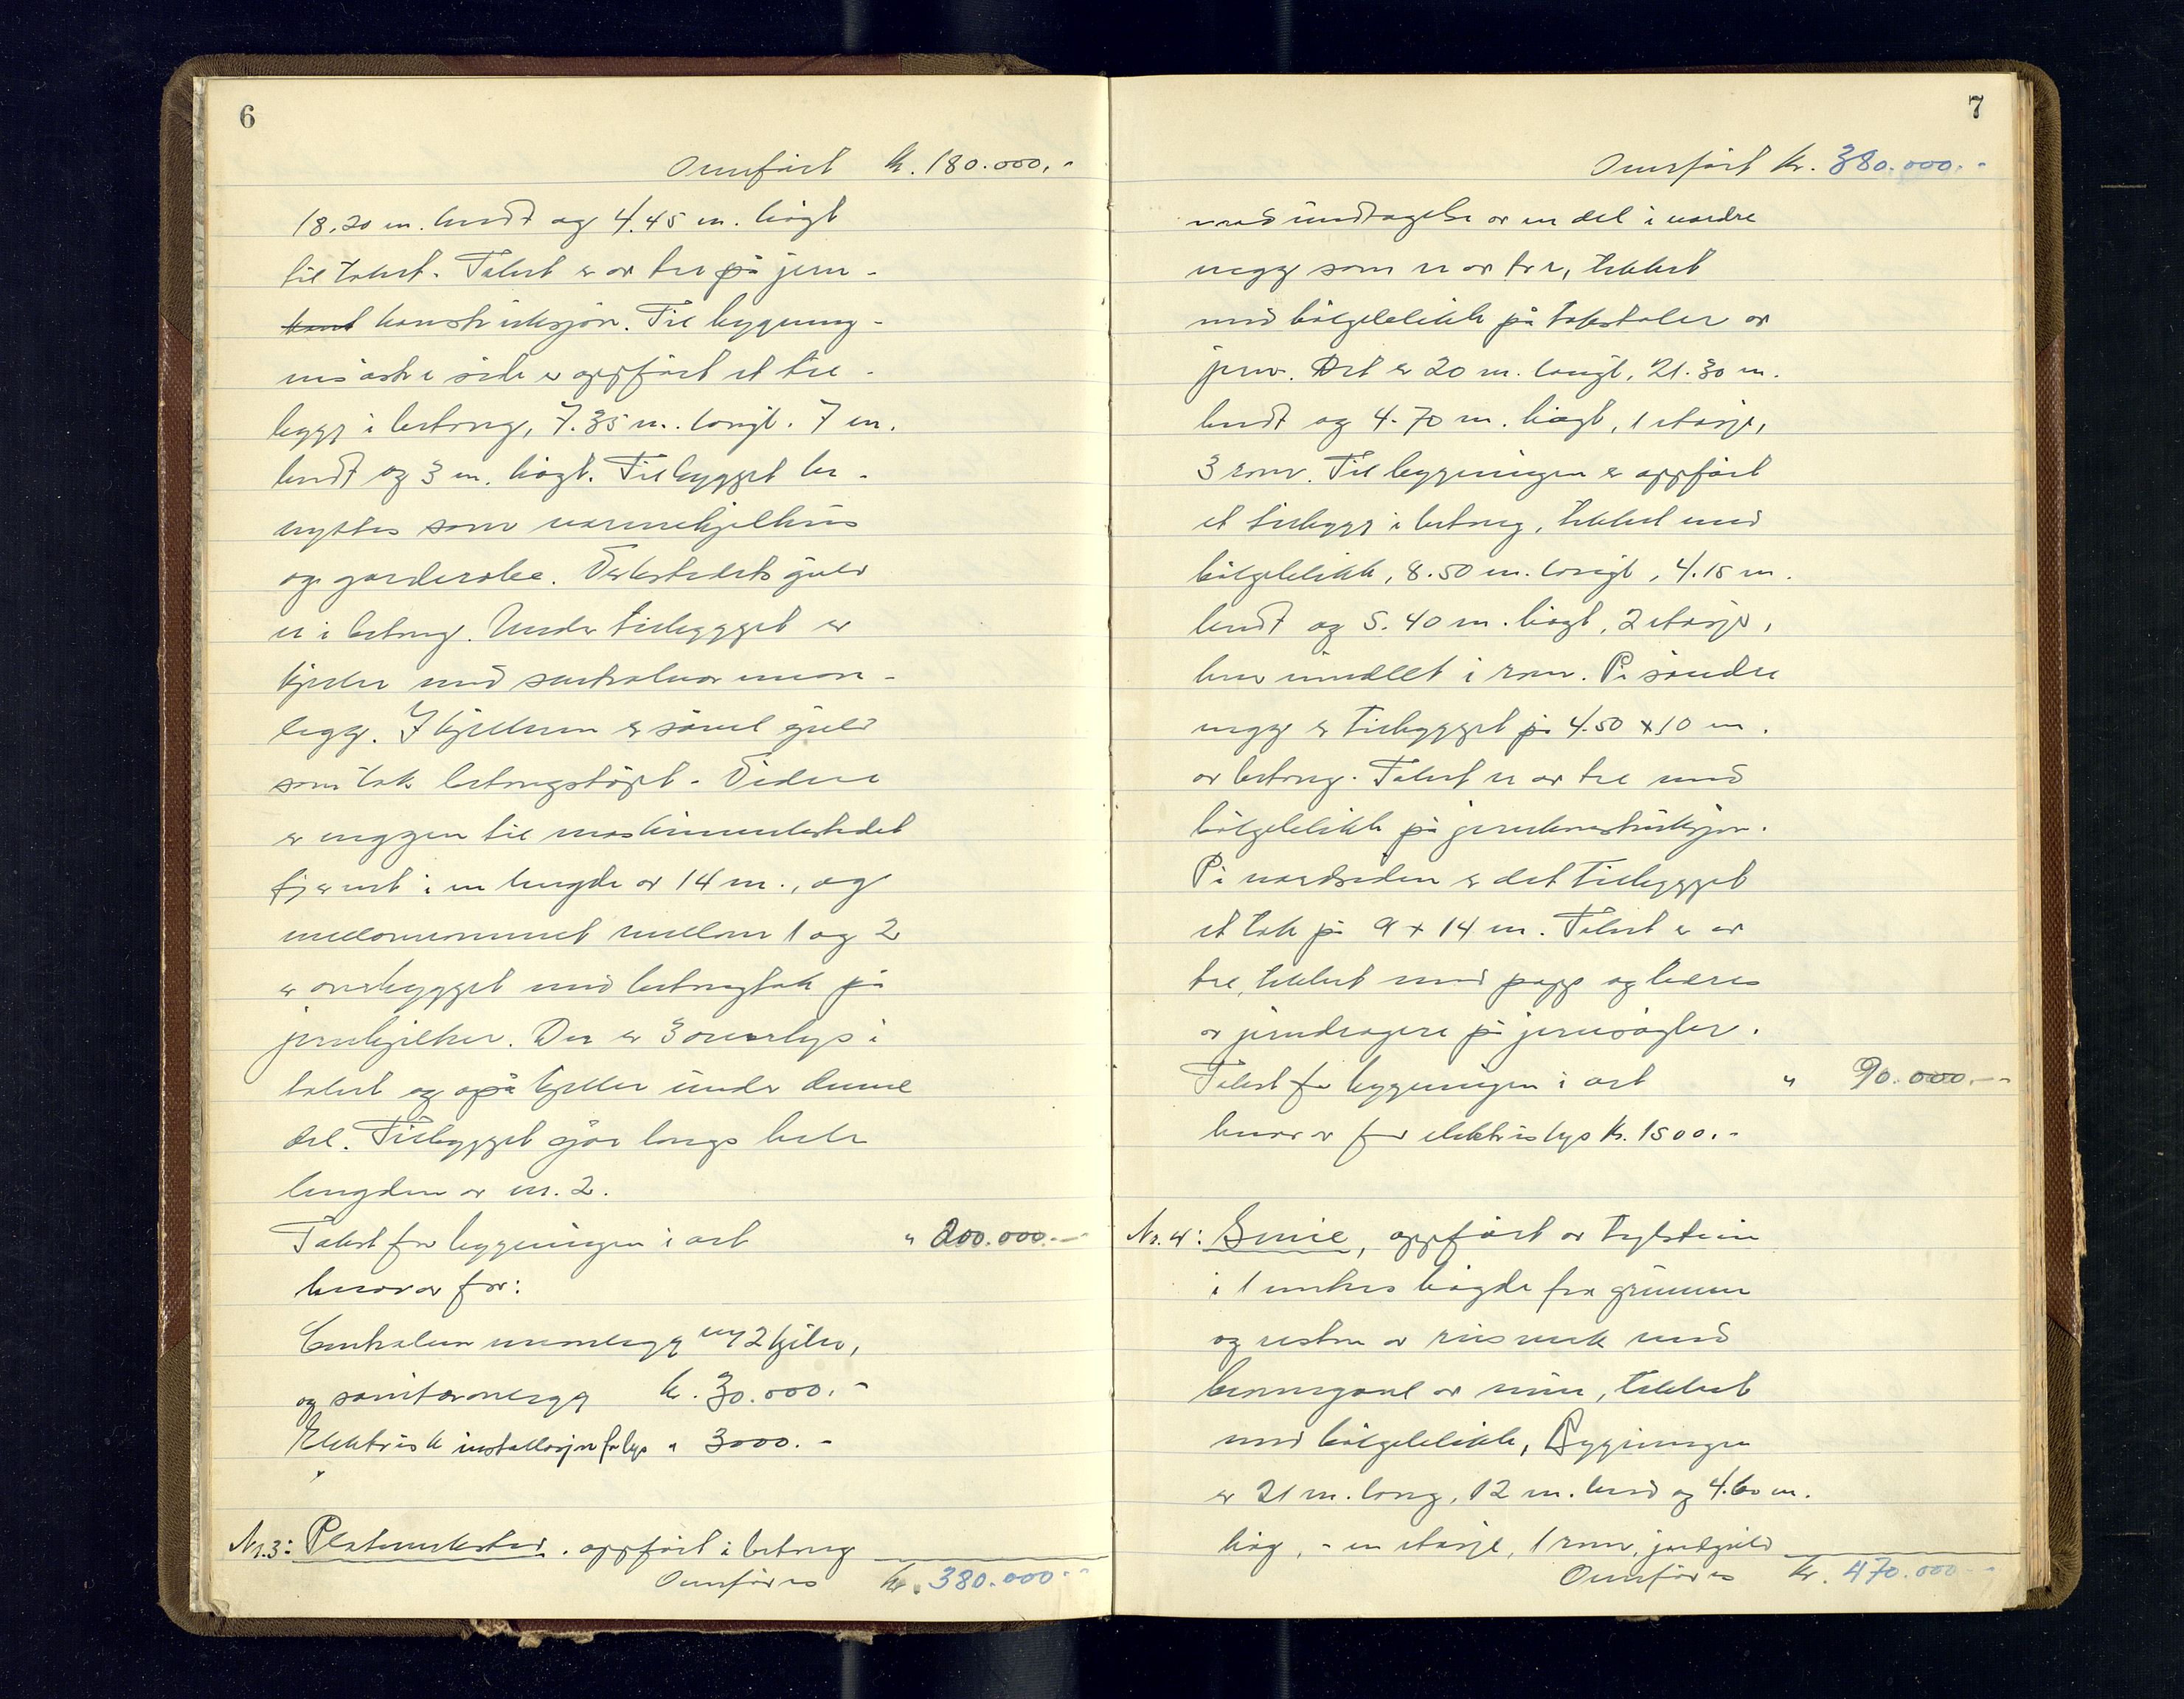 6
Overført kr. 180.000.-
18.20 m. bredt og 4.45 m. høgt
til taket. Taket er av tre på jern-
konst konstruksjon. Til bygning-
ens østre side er oppført et til-
bygg i betong, 7.35 m. langt. 7 m.
bredt og 3 m. høgt. Tilbygget be-
nyttes som varmekjelhus
og garderobe. Verkstedets gulv
er i betong. Under tilbygget er
kjeller med sentralvarmean-
legg. I kjelleren er såvel gulv
som tak betongstøpt. Videre
er veggen til maskinverkstedet
fjernet i en lengde av 14 m., og
mellomrommet mellom 1 og 2
er overbygget med betongtak på
jernbjelker. Der er 3 overlys i
taket og også kjeller under denne
del. Tilbygget går langs hele
lengden av nr. 2.
Takst for bygningen i alt " 200.000.-
herav for:
Centralvarmeanlegg m/2 kjeler,
og sanitæranlegg kr. 30.000.-
Elektrisk installasjon for lys " 3000.-
Nr. 3: Plateverksted. oppført i betong
Overføres kr. 380.000.-
7
Overført kr. 380.000.-
med undtagelse av en del i nordre
vegg som er av tre, tekket
med bølgeblikk på takstoler av
jern. Det er 20 m. langt, 21.30 m.
bredt og 4.70 m. høgt, 1 etasje,
3 rom. Til bygningen er oppført
et tilbygg i betong, tekket med
bølgeblikk, 8.50 m. langt, 4.15 m.
bredt og 5.40 m. høgt, 2 etasjer,
hver inndelt i rom. På søndre
vegg er tilbygget på 4.50 x 10 m.
av betong. Taket er av tre med
bølgeblikk på jernkonstruksjon.
På nordsiden er det tilbygget
et tak på 9 x 14 m. Taket er av
tre, tekket med papp og bæres
av jerndragere på jernsøyler.
Takst for bygningen i alt " 90.000.-
herav for elektrisk lys kr. 1500.-
Nr. 4: Smie, oppført av teglstein
i 1 meters høgde fra grunnen
og resten av reisverk med
branngavl av mur, tekket
med bølgeblikk, Bygningen
er 21 m. lang, 12 m. bred og 4.60 m.
høg, - en etasje, 1 rom, jordgulv
Overføres kr. 470.000.-